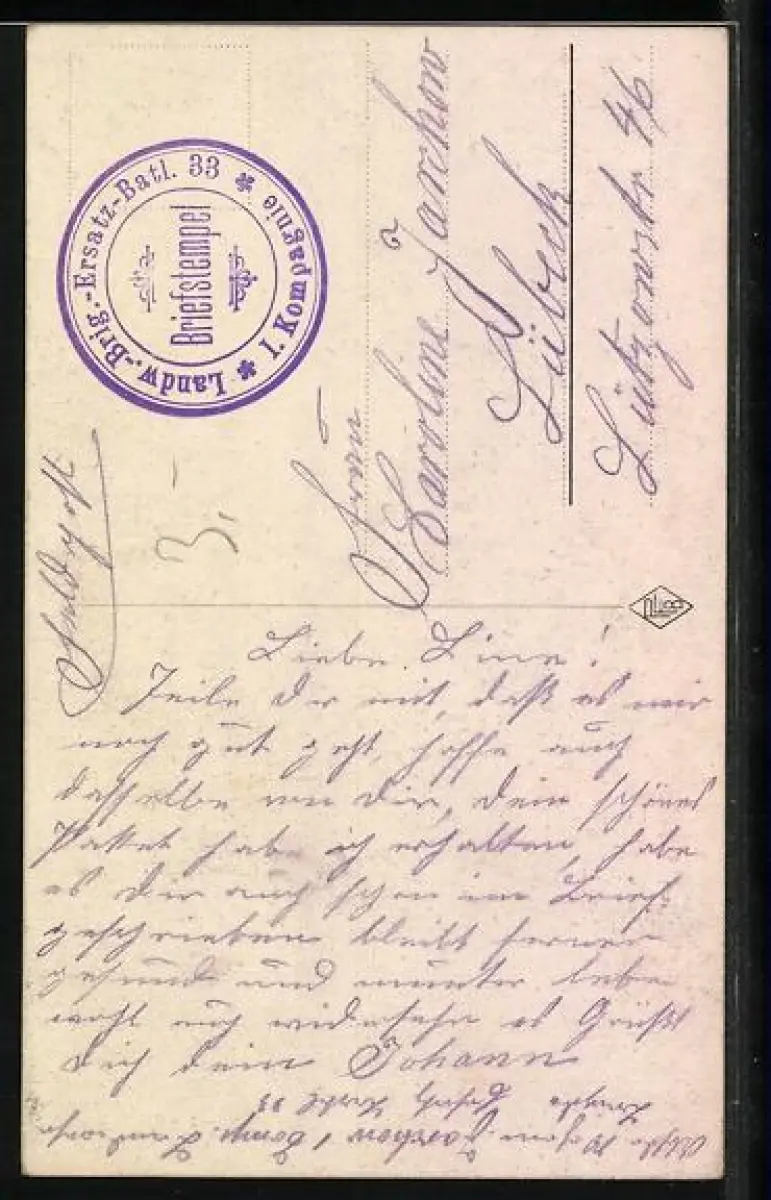 Landw.-Brig.-Ersatz-Batl. 33
1. Kompagnie
Briefstempel
Feldpost
3,-
Frau
Karoline Jarchow
Lübeck
Lützowstr 46
Liebe Line!
Teile Dir mit, daß es mir
noch gut geht, hoffe auch
dasselbe von Dir, dein schönes
Packet habe ich erhalten, habe
es Dir auch schon im Brief
geschrieben bleibt ferner
gesund und munter lebe
wohl auf widersehn es Grüßt
Dich dein Johann
Jarchow 1 Komp. Landwehr
33